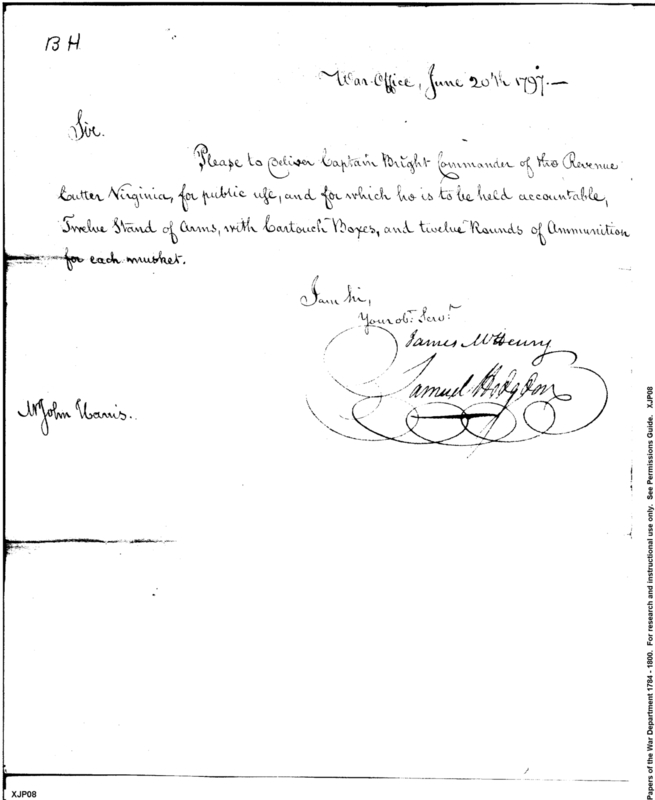 B H
War-Office, June 20th 1797.—
Sir.
Please to deliver Captain Bright Commander of the Revenue
Cutter Virginia, for public use, and for which he is to be held accountable,
Twelve Stand of Arms, with Cartouch Boxes, and twelve Rounds of Ammunition
for each musket.
I am Sir,
Your obt. Servt.
James McHenry
Samuel Hodgdon
Mr John Harris.
XJP08
Papers of the War Department 1784 - 1800. For research and instructional use only. See Permissions Guide. XJP08